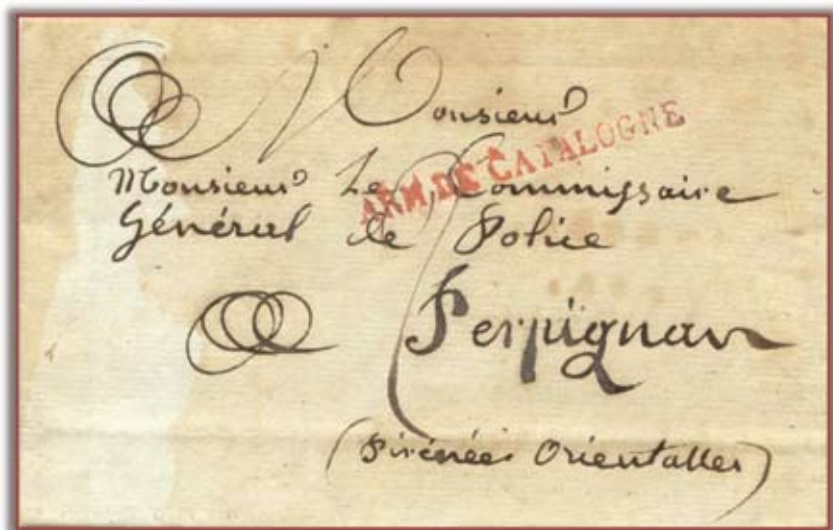 Monsieur
ARM. DE CATALOGNE
Monsieur Le Commissaire
Général de Police
Perpignan
(Pirénées Orientalles)